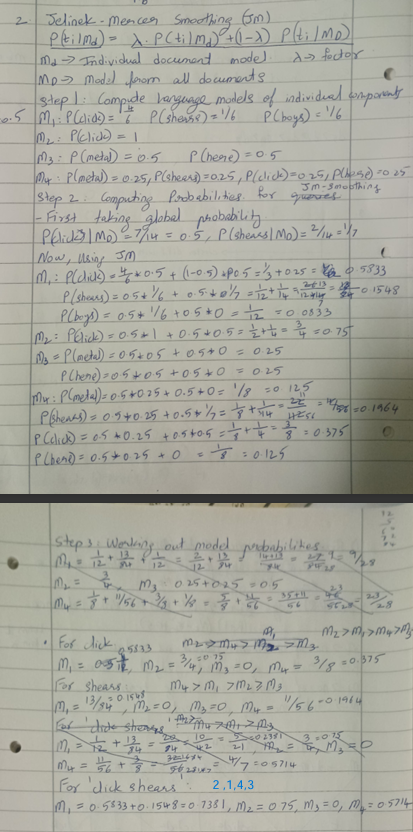 2. Jelinek-Mercer Smoothing (JM)
P(ti|Md) = λ. P(ti|Md) + (1-λ) P(ti|MD)
Md → Individual document model λ → factor
MD → Model from all documents
Step 1: Compute language models of individual components
0.5
M1: P(click) = 4/6 P(shears) = 1/6 P(boys) = 1/6
M2: P(click) = 1
M3: P(metal) = 0.5 P(here) = 0.5
M4: P(metal) = 0.25, P(shears) = 0.25, P(click) = 0.25, P(here) = 0.25
Step 2: Computing Probabilities for queries
JM-smoothing
- First taking global probability
P(click|MD) = 7/14 = 0.5, P(shears|MD) = 2/14 = 1/7
Now, using JM
M1: P(click) = 4/6 * 0.5 + (1-0.5) * 0.5 = 1/3 + 0.25 = 0.5833
P(shears) = 0.5 * 1/6 + 0.5 * 1/7 = 1/12 + 1/14 = 0.1548
P(boys) = 0.5 * 1/6 + 0.5 * 0 = 1/12 = 0.0833
M2: P(click) = 0.5 * 1 + 0.5 * 0.5 = 1/2 + 1/4 = 3/4 = 0.75
M3 = P(metal) = 0.5*0.5 + 0.5*0 = 0.25
P(here) = 0.5*0.5 + 0.5*0 = 0.25
M4: P(metal) = 0.5*0.25 + 0.5*0 = 1/8 = 0.125
P(shears) = 0.5*0.25 + 0.5*1/7 = 1/8 + 1/14 = 11/56 = 0.1964
P(click) = 0.5*0.25 + 0.5*0.5 = 1/8 + 1/4 = 3/8 = 0.375
P(here) = 0.5*0.25 + 0 = 1/8 = 0.125
Step 3: Working out model probabilities
M1 = 1/12 + 13/84 + 1/12 = 2/12 + 13/84 = 14+13/84 = 9/28
M2 = 3/4, M3 = 0.25 + 0.25 = 0.5
M4 = 1/8 + 11/56 + 3/8 + 1/8 = 5/8 + 11/56 = 35+11/56 = 23/28
M2 > M1 > M4 > M3
For click M2 > M4 > > M3
M1 = 0.5833, M2 = 3/4 = 0.75, M3 = 0, M4 = 3/8 = 0.375
For shears: M4 > M1 > M2 ≥ M3
M1 = 13/84 = 0.1548, M2 = 0, M3 = 0, M4 = 11/56 = 0.1964
For 'click shears' M2 > M4 > M1 > M3
M1 = 1/12 + 13/84 = 20/84 = 10/42 = 5/21 = 0.2381, M2 = 3/4 = 0.75, M3 = 0
M4 = 11/56 + 3/8 = = 4/7 = 0.5714
For 'click shears: 2,1,4,3
M1 = 0.5833 + 0.1548 = 0.7381, M2 = 0.75, M3 = 0, M4 = 0.5714